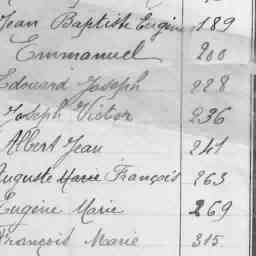 Jean Baptiste Eugène 189
Emmanuel 200
Edouard Joseph 228
Joseph Victor 236
Albert Jean 241
Auguste Marie François 263
Eugène Marie 269
François Marie 315